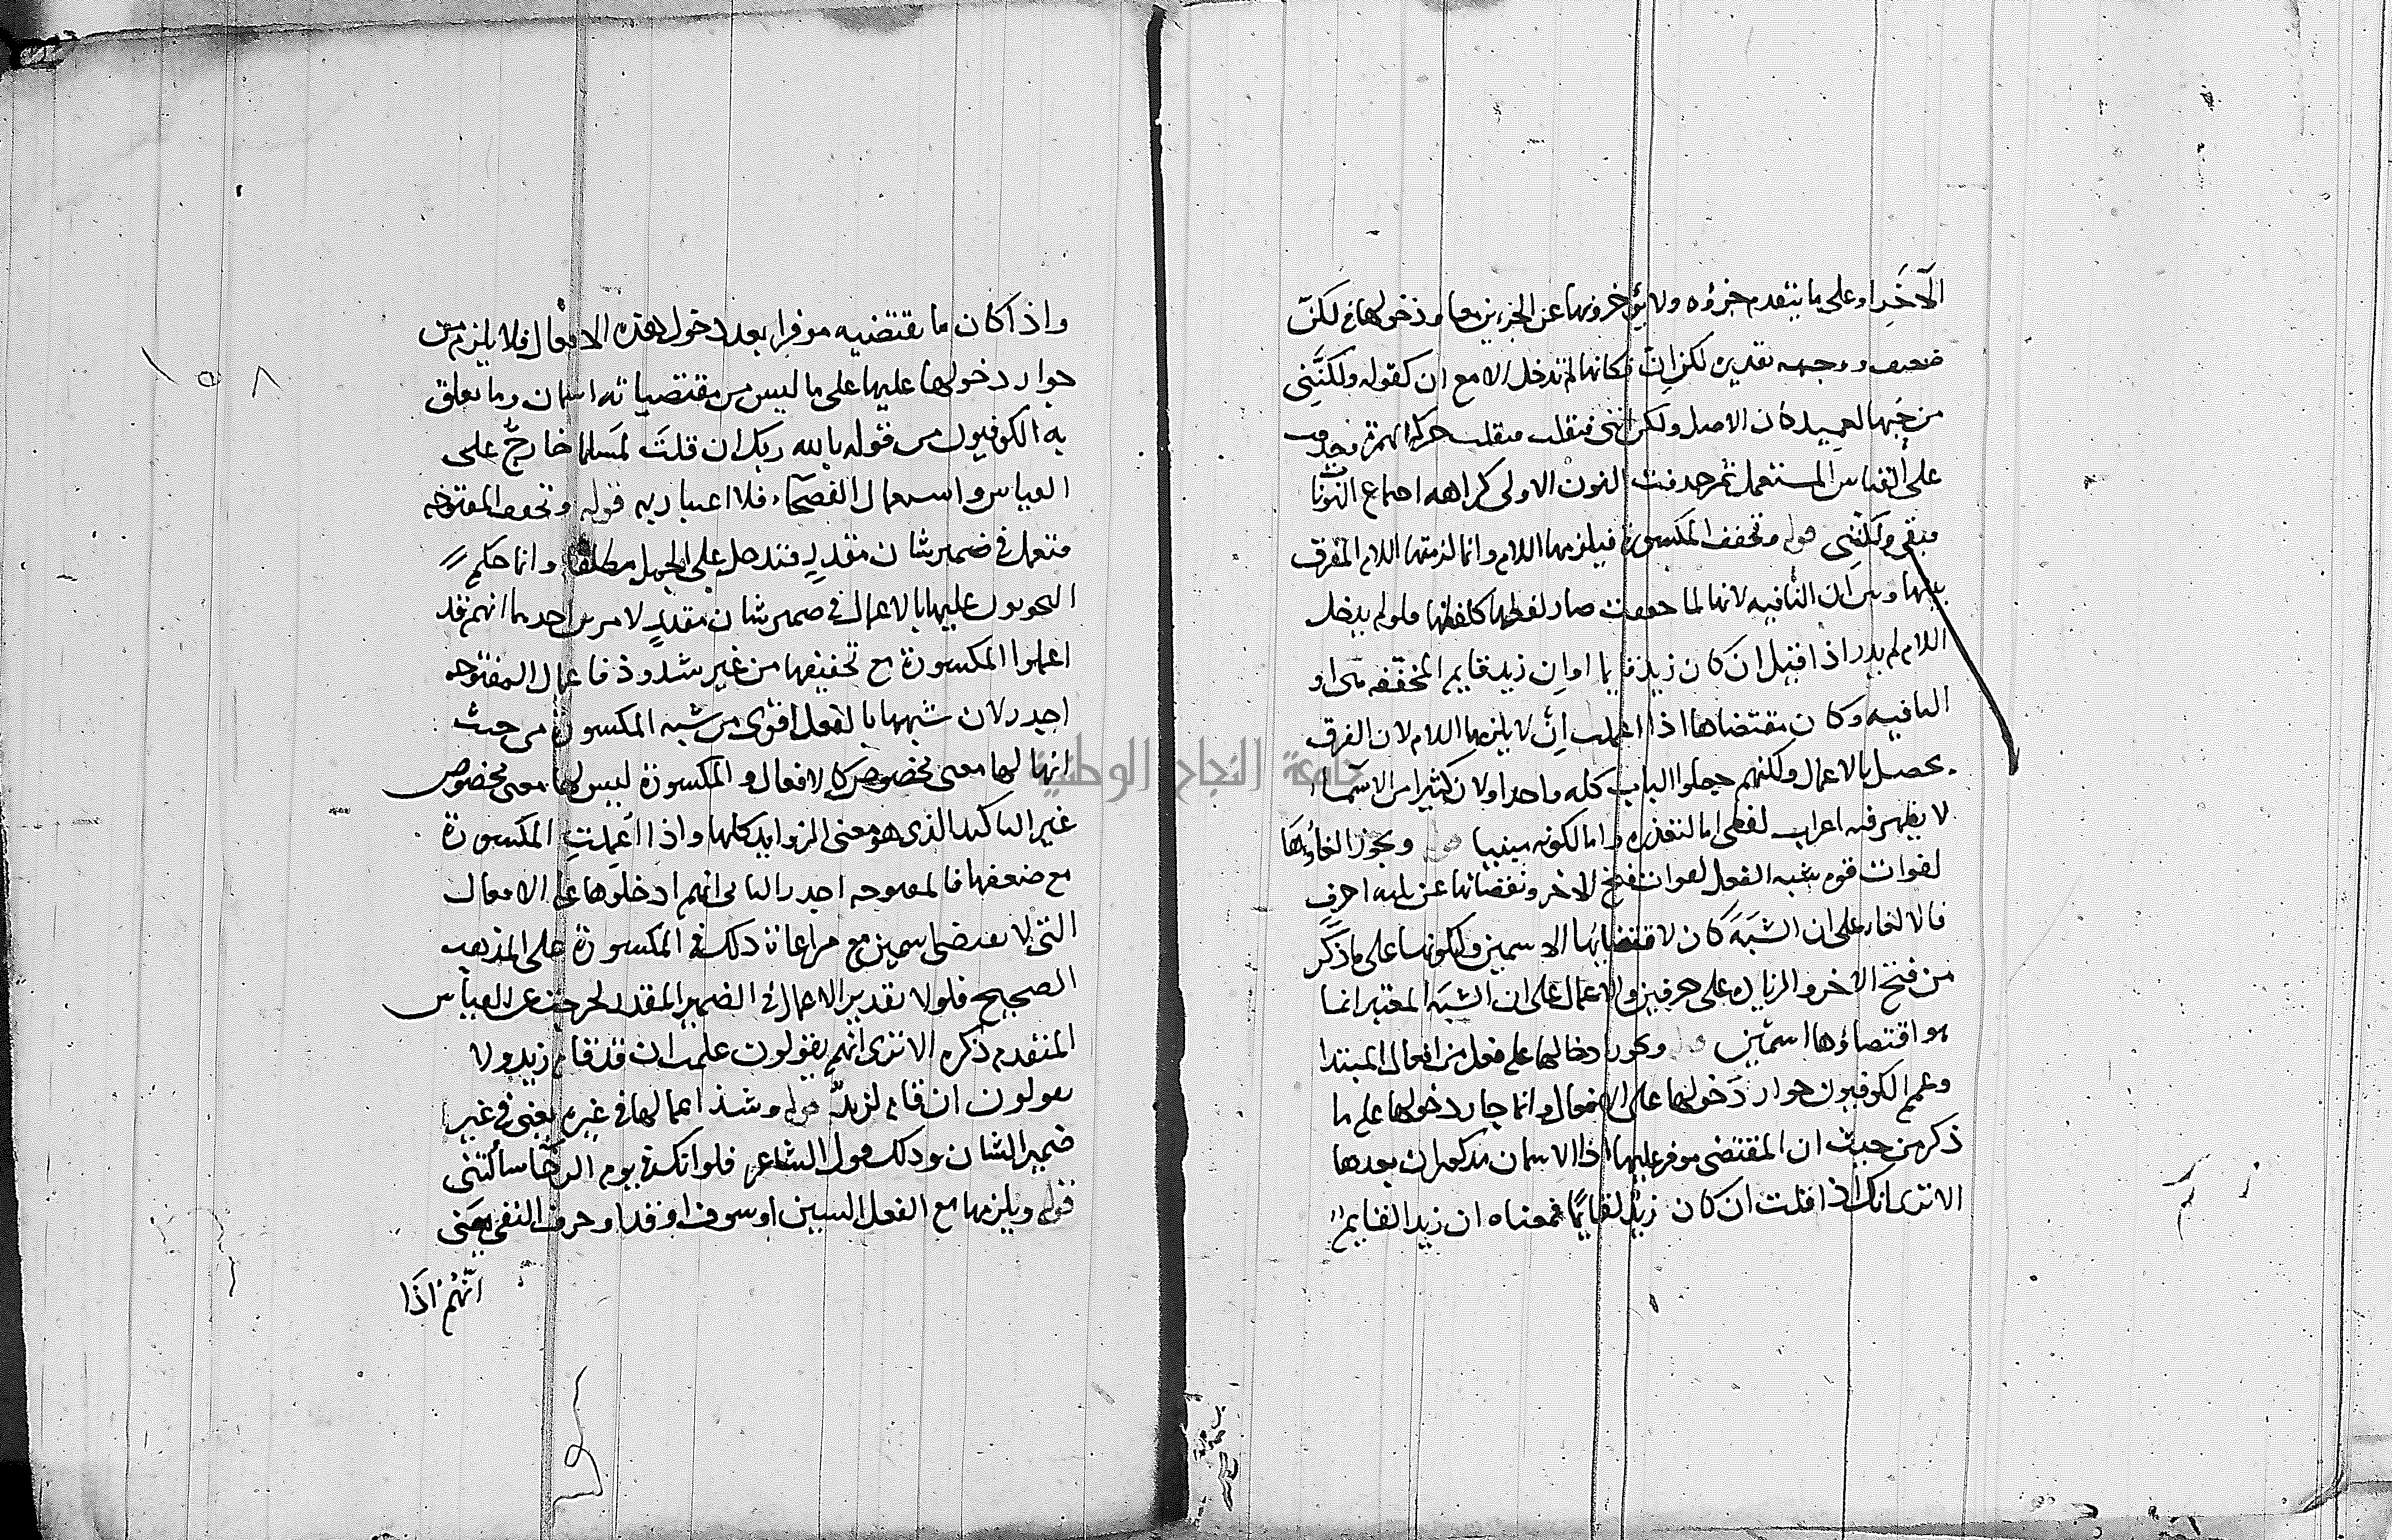 الآخَر او على ما يتقدم خبره ولا يؤخرونها عن الجزءين معا ودخولها في لكنّ
ضعيف ووجهه تقديره لكن اِنّ فكانها لم تدخل الا مع ان كقوله ولكنَّنِى
من حبها لعميد كان الاصل ولكن اننى فنقلت حركة الهمزة وحذفت
على القياس المستعمل ثم حذفت النون الاولى كراهه اجتماع النونات
فبقى ولكنَّنِى قوله وتخفف المكسورة فيلزمها اللام وانما لزمتها اللام للفرق
بينها وبين ان النافيه لانها لما خففت صار لفظها كلفظها فلو لم يدخل
اللام لم يدر اذا قيل ان كان زيد قايما او اِن زيد قايم المخففه هى او
النافيه وكان مقتضاها اذا اعملت اِن لا يلزمها اللام لان الفرق
يحصل بالاعمال ولكنهم جعلوا الباب كله واحدا ولان كثيرا من الاسماء
لا يظهر فيه اعراب لفظى اما لتعذره واما لكونه مبنيا قوله ويجوز الغاؤها
لفوات قوه شبه الفعل لفوات فتح الاخر ونقصانها عن ثلثه احرف
فالالغاء على ان الشَبَه كان لاقتضايها الاسمين ولكونها على ما ذكر
من فتح الاخر والزياده على حرفين والاعمال على ان الشبه المعتبر انما
هو اقتضاؤها اسمين قوله ويجوز دخولها على فعل من افعال المبتدا
وعمم الكوفيون جواز دَخولها على الافعال وانما جاز دخولها على ما
ذكر من حيث ان المقتضى موفر عليها اذا الاسمان مذكوران بعدها
الا ترى انك اذا قلت ان كان زيدٌ لقايمًا فمعناه ان زيدا لقايم
واذا كان ما يقتضيه موفرا بعد دخول هذه الافعال فلا يلزم من
جواز دخولها عليها على ما ليس من مقتضياته اسمان وما تعلق
به الكوفيون من قوله بالله ربك ان قلتَ لمَسلما خارجٌ على
القياس واستعمال الفصحاء فلا اعتبار به قوله وتخفف المفتوحه
فتعمل فى ضمير شان مقدرٍ فتدخل على الجمل مطلقا وانما حكم
النحويون عليها بالاعمال فى ضمير شان مقدرٍ لامرين احدهما انهم قد
اعملوا المكسورة مع تخفيفها من غير شذوذ فاعمال المفتوحه
اجدر لان شبهها بالفعل اقوى من شبه المكسورة من حيث
انها لها معنى مخصوص كالافعال والمكسورة ليس لها معنى مخصوص
غير التاكيد الذى هو معنى الزوايد كلها واذا اُعملتِ المكسورة
مع ضعفها فالمفتوحه اجدر الثانى انهم ادخلوها على الافعال
التى لا تقتضى اسمين مع مراعاة ذلك فى المكسورة على المذهب
الصحيح فلولا تقدير الاعمال فى الضمير المقدر لخرجت عن القياس
المتقدم ذكره الا ترى انهم يقولون علمت ان قد قام زيد ولا
يقولون ان قام لزيدٌ قوله وشذ اعمالها فى غيره يعنى فى غير
ضمير الشان وذلك قول الشاعر فلو انك فى يوم الرخَا سألتنى
قوله ويلزمها مع الفعل السين او سوف او قد او حرف النفى يعنى
انّهُمْ اذَا
١٥٨
جامعة النجاح الوطنية